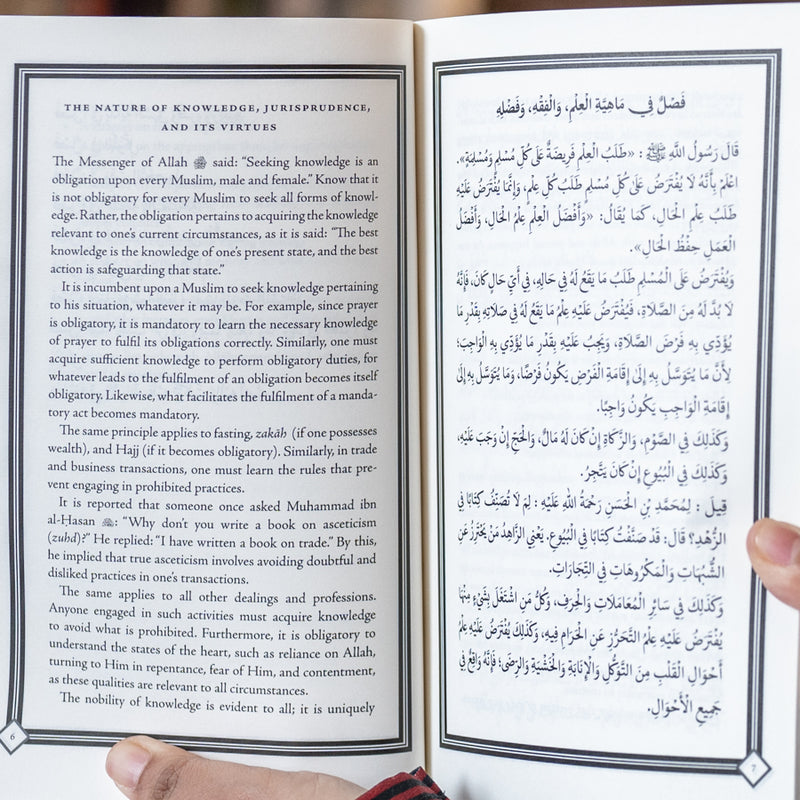 THE NATURE OF KNOWLEDGE, JURISPRUDENCE,
AND ITS VIRTUES
The Messenger of Allah ﷺ said: “Seeking knowledge is an
obligation upon every Muslim, male and female.” Know that it
is not obligatory for every Muslim to seek all forms of knowl-
edge. Rather, the obligation pertains to acquiring the knowledge
relevant to one’s current circumstances, as it is said: “The best
knowledge is the knowledge of one’s present state, and the best
action is safeguarding that state.”
It is incumbent upon a Muslim to seek knowledge pertaining
to his situation, whatever it may be. For example, since prayer
is obligatory, it is mandatory to learn the necessary knowledge
of prayer to fulfil its obligations correctly. Similarly, one must
acquire sufficient knowledge to perform obligatory duties, for
whatever leads to the fulfilment of an obligation becomes itself
obligatory. Likewise, what facilitates the fulfilment of a manda-
tory act becomes mandatory.
The same principle applies to fasting, zakāh (if one possesses
wealth), and Hajj (if it becomes obligatory). Similarly, in trade
and business transactions, one must learn the rules that pre-
vent engaging in prohibited practices.
It is reported that someone once asked Muhammad ibn
al-Hasan : “Why don’t you write a book on asceticism
(zuhd)?” He replied: “I have written a book on trade.” By this,
he implied that true asceticism involves avoiding doubtful and
disliked practices in one’s transactions.
The same applies to all other dealings and professions.
Anyone engaged in such activities must acquire knowledge
to avoid what is prohibited. Furthermore, it is obligatory to
understand the states of the heart, such as reliance on Allah,
turning to Him in repentance, fear of Him, and contentment,
as these qualities are relevant to all circumstances.
The nobility of knowledge is evident to all; it is uniquely
6
فَصْلٌ فِي مَاهِيَّةِ الْعِلْمِ، وَالْفِقْهِ، وَفَضْلِهِ
قَالَ رَسُولُ اللَّهِ ﷺ : «طَلَبُ الْعِلْمِ فَرِيضَةٌ عَلَى كُلِّ مُسْلِمٍ وَمُسْلِمَةٍ».
اعْلَمْ بِأَنَّهُ لَا يُفْتَرَضُ عَلَى كُلِّ مُسْلِمٍ طَلَبُ كُلِّ عِلْمٍ، وَإِنَّمَا يُفْتَرَضُ عَلَيْهِ
طَلَبُ عِلْمِ الْحَالِ، كَمَا يُقَالُ: «وَأَفْضَلُ الْعِلْمِ عِلْمُ الْحَالِ، وَأَفْضَلُ
الْعَمَلِ حِفْظُ الْحَالِ».
وَيُفْتَرَضُ عَلَى الْمُسْلِمِ طَلَبُ مَا يَقَعُ لَهُ فِي حَالِهِ، فِي أَيِّ حَالٍ كَانَ، فَإِنَّهُ
لَا بُدَّ لَهُ مِنَ الصَّلَاةِ، فَيُفْتَرَضُ عَلَيْهِ عِلْمُ مَا يَقَعُ لَهُ فِي صَلَاتِهِ بِقَدْرِ مَا
يُؤَدِّي بِهِ فَرْضَ الصَّلَاةِ، وَيَجِبُ عَلَيْهِ بِقَدْرِ مَا يُؤَدِّي بِهِ الْوَاجِبَ؛
لِأَنَّ مَا يُتَوَسَّلُ بِهِ إِلَى إِقَامَةِ الْفَرْضِ يَكُونُ فَرْضًا، وَمَا يُتَوَسَّلُ بِهِ إِلَى
إِقَامَةِ الْوَاجِبِ يَكُونُ وَاجِبًا.
وَكَذَلِكَ فِي الصَّوْمِ، وَالزَّكَاةِ إِنْ كَانَ لَهُ مَالٌ، وَالْحَجِّ إِنْ وَجَبَ عَلَيْهِ،
وَكَذَلِكَ فِي الْبُيُوعِ إِنْ كَانَ يَتَّجِرُ.
قِيلَ : لِمُحَمَّدِ بْنِ الْحَسَنِ رَحْمَةُ اللَّهِ عَلَيْهِ : لِمَ لَا تُصَنِّفُ كِتَابًا فِي
الزُّهْدِ؟ قَالَ: قَدْ صَنَّفْتُ كِتَابًا فِي الْبُيُوعِ، يَعْنِي الزَّاهِدُ مَنْ يَحْتَرِزُ عَنِ
الشُّبُهَاتِ وَالْمَكْرُوهَاتِ فِي التِّجَارَاتِ.
وَكَذَلِكَ فِي سَائِرِ الْمُعَامَلَاتِ وَالْحِرَفِ، وَكُلُّ مَنِ اشْتَغَلَ بِشَيْءٍ مِنْهَا
يُفْتَرَضُ عَلَيْهِ عِلْمُ التَّحَرُّزِ عَنِ الْحَرَامِ فِيهِ، وَكَذَلِكَ يُفْتَرَضُ عَلَيْهِ عِلْمُ
أَحْوَالِ الْقَلْبِ مِنَ التَّوَكُّلِ وَالْإِنَابَةِ وَالْخَشْيَةِ وَالرِّضَى؛ فَإِنَّهُ وَاقِعٌ فِي
جَمِيعِ الْأَحْوَالِ.
7